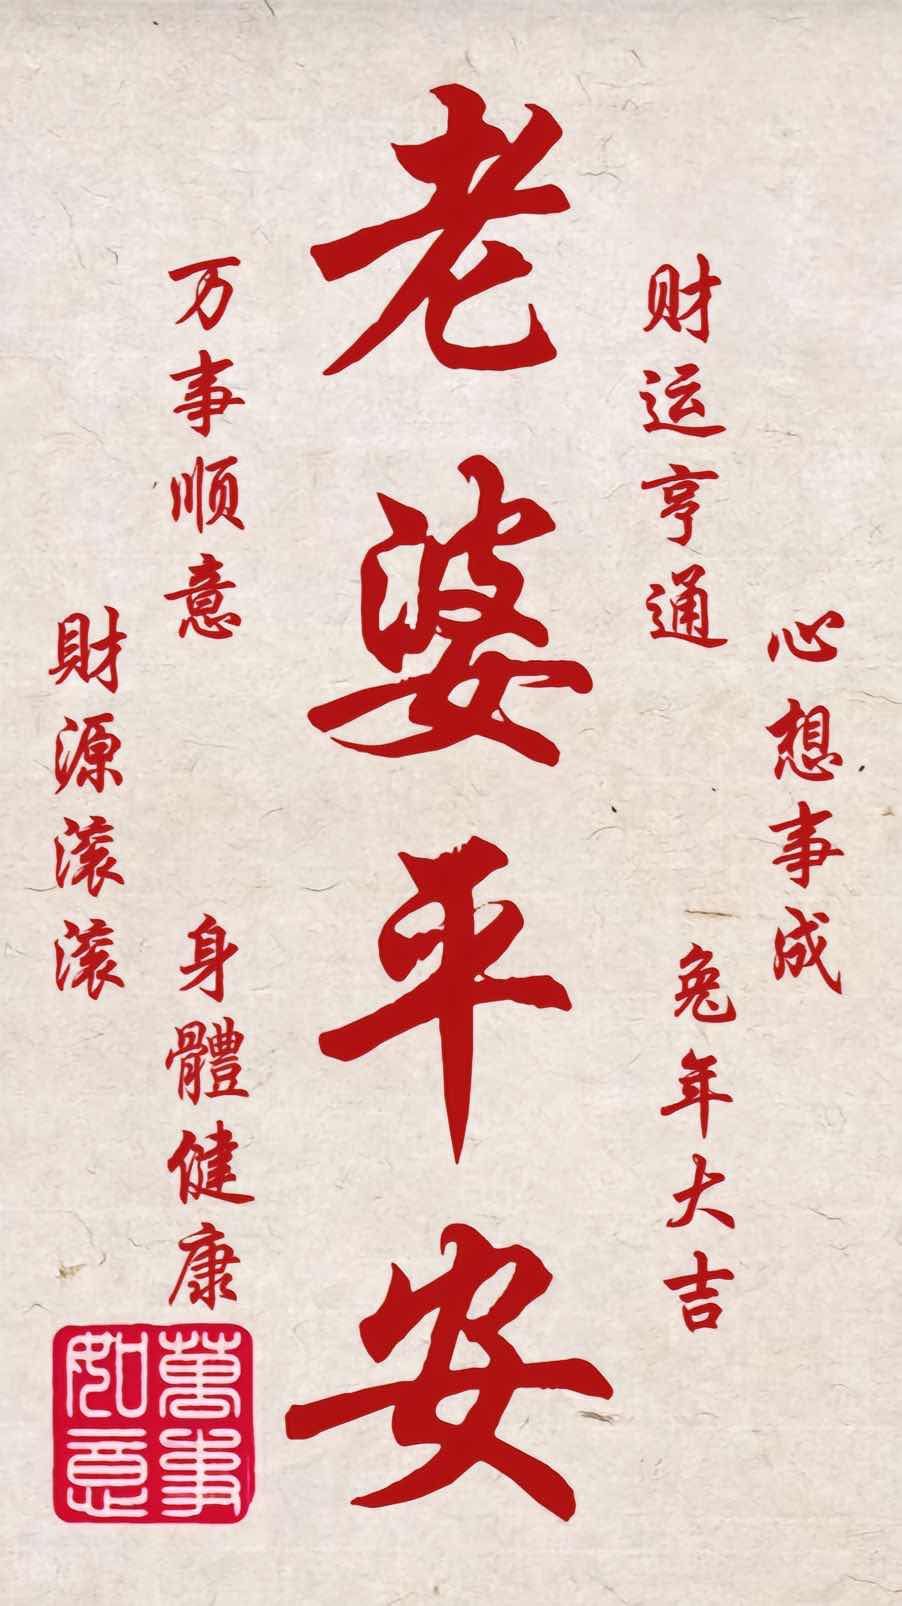 心想事成
财运亨通
兔年大吉
老婆平安
万事顺意
身體健康
財源滚滚
萬事如意